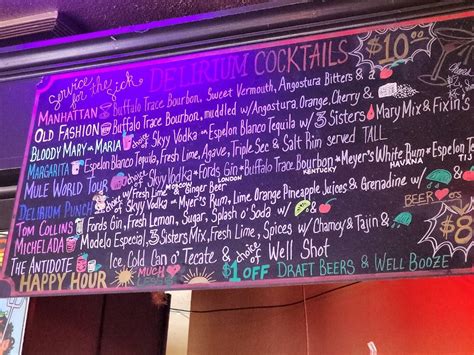 Service for the Sick
DELIRIUM COCKTAILS $10.00
MANHATTAN Buffalo Trace Bourbon, Sweet Vermouth, Angostura Bitters &
OLD FASHION Buffalo Trace Bourbon, muddled w/Angostura, Orange, Cherry &
BLOODY MARY or MARIA choice of Skyy Vodka or Espelon Blanco Tequila w/ 3 Sisters Mary Mix & Fixin's
MARGARITA Espelon Blanco Tequila, Fresh Lime, Agave, Triple Sec & Salt Rim served TALL
MULE WORLD TOUR choice of Skyy Vodka or Fords Gin or Buffalo Trace Bourbon or Meyer's White Rum or Espelon Tequila
w/Fresh Lime & Ginger Beer MOSCOW LONDON KENTUCKY HAVANA
DELIRIUM PUNCH choice of Skyy Vodka or Myer's Rum, Lime Orange Pineapple Juices & Grenadine w/ &
TOM COLLINS Fords Gin, Fresh Lemon, Sugar, Splash o' Soda w/ &
MICHELADA Modelo Especial, 3 Sisters Mix, Fresh Lime, Spices w/ Chamoy & Tajin &
THE ANTIDOTE Ice, Cold Can o' Tecate & choice of Well Shot
BEER
$8
HAPPY HOUR MUCH LESS $1 OFF DRAFT BEERS & WELL BOOZE